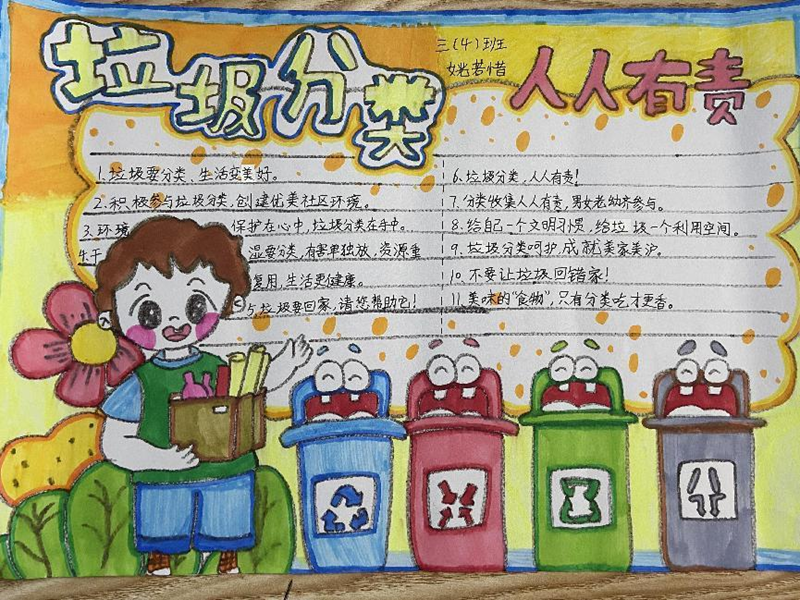 垃圾分类
三(4)班
姚若惜
人人有责
1.垃圾要分类、生活变美好。
2.积极参与垃圾分类,创建优美社区环境。
3.环境
保护在心中,垃圾分类在手中。
湿要分类,有害单独放,资源重
复用,生活更健康。
5.垃圾要回家,请您帮助它!
6.垃圾分类,人人有责!
7.分类收集人人有责,男女老幼齐参与。
8.给自己一个文明习惯,给垃圾一个利用空间。
9.垃圾分类呵护,成就美家美沪。
10.不要让垃圾回错家!
11.美味的“食物”,只有分类吃才更香。